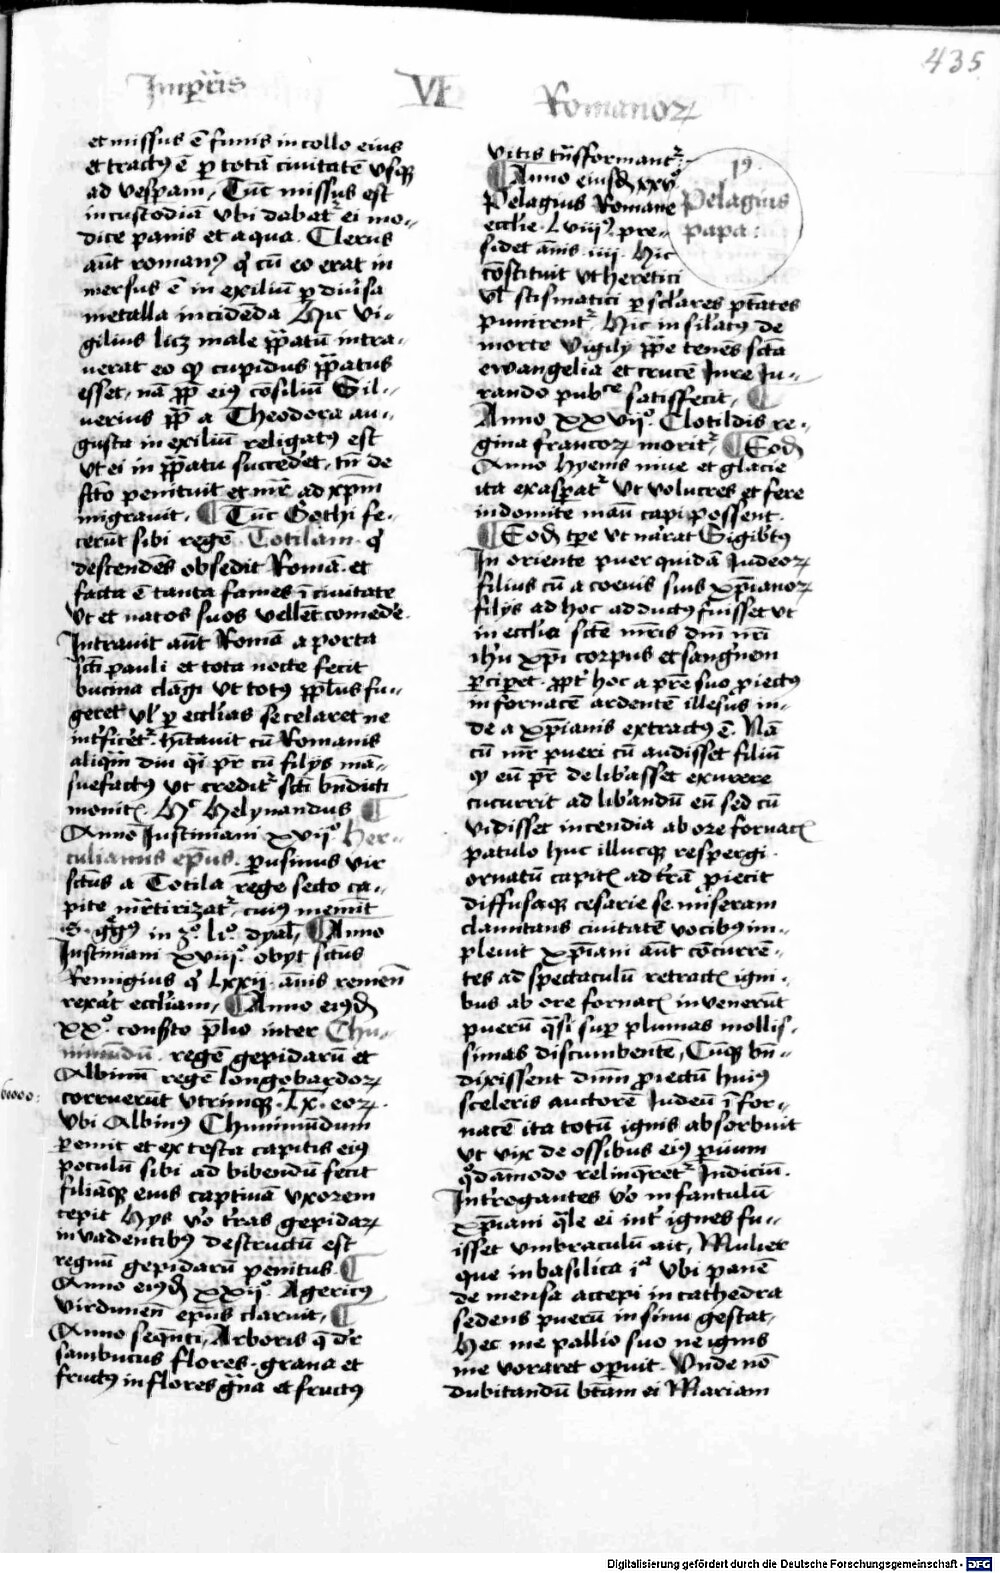 435
Imp̄ris VI Romanoꝝ
et missus ē funis in collo eius
et tractꝰ ē ꝑ totā ciuitatē vsqꝫ
ad vesꝑam, Tūc missus est
in custodiā vbi dabat᷑ ei mo-
dice panis et aqua. Clerus
aūt romanꝰ qͥ cū eo erat in
mersus ē in exiliū ꝑ diūsa
metalla incidēda Hic Vi-
gilius licꝫ male pp̄atū intra-
uerat eo qꝙ cupidus pp̄atus
esset, nā ꝓp̄ eiꝰ cōsiliū Sil-
uerius pp̄ a Theodora au-
gusta in exiliū religatꝰ est
vt ei in pp̄atu succed'et, tn̄ de
fc̄to penituit et mr̄ ad xp̄m
migrauit, ¶ Tūc Gothi fe-
cerūt sibi regē Totilam qͥ
descendēs obsedit Romā et
facta ē tanta fames ī ciuitate
vt et natos suos vellēt comed'e.
Intrauit aūt Romā a porta
sc̄ti pauli et tota nocte fecit
bucina clāgi vt totꝰ pp̄lus fu-
geret vl' ꝑ ecc̄lias se celaret ne
int'ficeret᷑. hītauit cū Romanis
aliqͣm diu qͣi pr̄ cū filijs mā-
suefactꝰ vt credit᷑ sc̄ti bn̄dicti
monitꝭ. Hͨ Helynandus ¶
Anno Iustiniani xvijͦ Her-
culianus ep̄us. ꝑusinus vir
sc̄tus a Totila rege secto ca-
pite mr̄tirizat᷑, cuiꝰ meminit
S. gͣgꝰ in 3ͦ. liͦ. dyal', ¶ Anno
Iustiniani xviijͦ. obijt sc̄tus
Remigius qͥ Lxxij annis remen̄
rexat ecc̄liam, ¶ Anno eiꝰđ
xxͦ. conf̄to p̄lio inter Chu-
nimūdū. regē gepidarū et
Albinū regē longobardoꝝ
corruerūt vtrimqꝫ. Lx. eoꝝ.
6000:
vbi Albinꝰ Chunimūdum
ꝑemit et ex testa capitis eiꝰ
poculū sibi ad bibendū fecit
filiāqꝫ eius captiuā vxorem
cepit Hijs v'o t'ras gepidaꝝ
inuadentibꝰ destructū est
regnū gepidarū penitus. ¶
Anno eiꝰđ xxijͦ. Agericꝰ
virdunen̄ ep̄us claruit, ¶
Anno seqn̄ti, Arboris q̄ dr̄
sambucus flores. grana et
fructꝰ in flores gͣna et fructꝰ
vitis tn̄sformant᷑:
¶ Anno eiusđ xxvͦ
Pelagius Romane
ecc̄lie. Lviijͦ. pre-
sidet ānis. iiij. Hic
cōstituit vt heretici
19.
Pelagius
papa:
vl' scismatici ꝑ scl'ares ptātes
punirent᷑, Hic insil'atꝰ de
morte vigilij pp̄e tenēs sctā
ewangelia et crucē Iure iu-
rando pub͡ce satisfecit, ¶
Anno xxvijͦ. Clotildis re-
gina francoꝝ morit᷑, ¶ Eođ
Anno hyems niue et glacie
ita exasꝑat᷑ vt volucres et fere
indomite manū capi possent.
¶ Eođ tꝑe vt nārat Sigibtꝰ
In oriente puer quidā Iudeoꝝ
filius cū a coeuis suis xp̄ianoꝝ
filijs ad hoc adductꝰ fuisset vt
in ecc̄lia sctē mr̄is dn̄i nr̄i
ih'u xp̄i corpus et sangͥnem
ꝑciꝑet. ꝓpt' hoc a pr̄e suo ꝓiectꝰ
in fornacē ardentē illesus in-
de a xp̄ianis extractꝰ ē. Nā
cū mr̄ pueri cū audisset filiū
qꝙ eū pr̄ delib'asset exurere
cucurrit ad lib'andū eū sed cū
vidisset incendia ab ore fornacꝭ
patulo huc illucqꝫ respergi.
ornatū capitꝭ ad t'rā ꝓiecit
diffusaqꝫ cesarie se miseram
clamitans ciuitatē vocibꝰ im-
pleuit xp̄iani aūt cōcurrē-
tes ad spectaculū retractꝭ igni-
bus ab ore fornacꝭ inuenerūt
puerū qͣsi suꝑ plumas mollis-
simas discumbentē, Cūqꝫ bn̄-
dixissent dn̄m ꝓiectū huiꝰ
sceleris auctorē Iudeū ī for-
nacē ita totū ignis absorbuit
vt vix de ossibus eiꝰ ꝑuum
qͦdāmodo relinqͤret᷑ Indiciū.
Int'rogantes v'o infantulū
xp̄iani qͣle ei int' ignes fu-
isset vmbraculū ait, Mulier
que in basilica iͣ vbi panē
de mensa accepi in cathedra
sedens puerū in sinu gestat,
Hec me pallio suo ne ignis
me voraret oꝑuit. Vnde nō
dubitandū btām ei Mariam
Digitalisierung gefördert durch die Deutsche Forschungsgemeinschaft - DFG